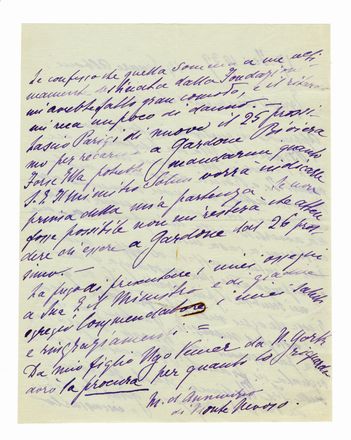 Le confesso che quella somma a me
mensilmente da destinata dalla Fondazione
mi avrebbe fatto gran comodo, e il ritardo
mi reca un poco di danno.
Lascio Parigi di nuovo il 25 prossi-
mo per recarmi a Gardone Riviera
Forse Ella potrà mandarmi quanto
S. E. il Ministro vorrà indicarle
prima della mia partenza. Se non
fosse possibile non mi resterà che atten
dere di essere a Gardone dal 26 pros
simo.
La prego di presentare i miei ossequi
a Sua E. il Ministro e di gradire
egregio Commendatore i miei saluti
e ringraziamenti. =
Da mio figlio Ugo Venier da N. York
avrò la procura per quanto lo riguarda
M. d'Annunzio
di Monte Nevoso.